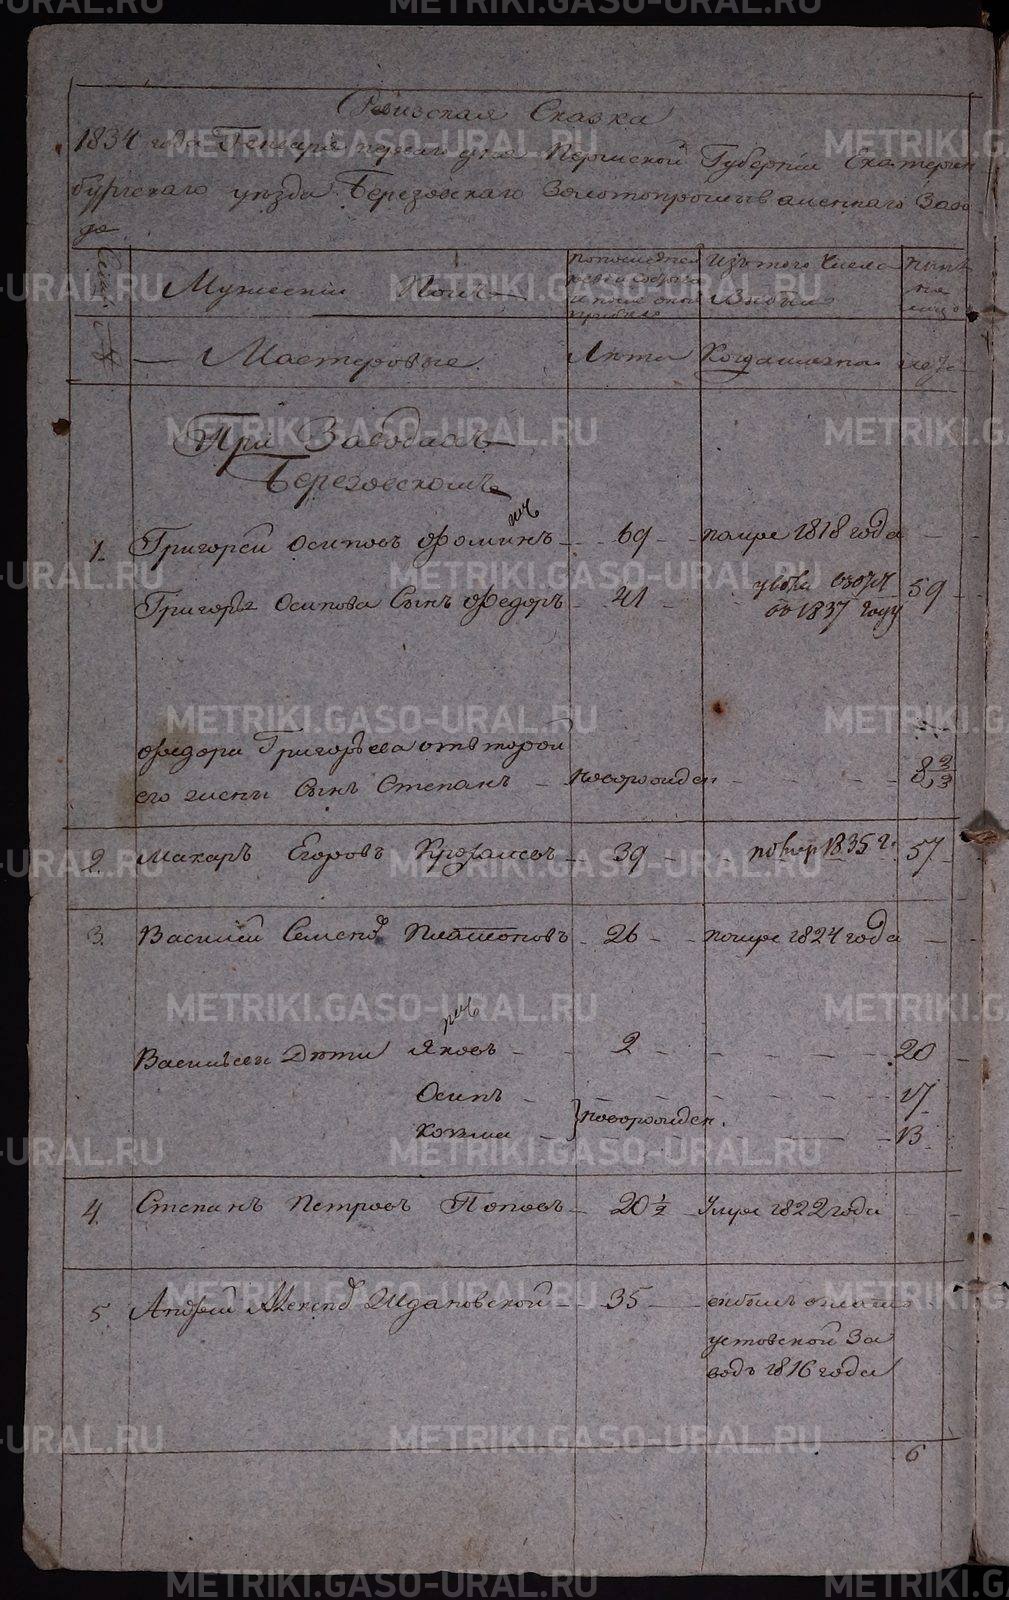 Ревизская Сказка
1834 года Генваря перваго дня Пермской Губерніи Екатерин
бургскаго уѣзда Березовскаго Золотопромываленнаго Заво
да
Мужескій Полъ
По последней ревизіи состояло и после оной прибыло
Изъ того Числа Выбыло
Ныне на лицо
Мастеровые
Лѣта
Когда именно
При Заводахъ
Березовскомъ
1. Григорей Осиповъ Фоминъ 69 помре 1818 года
Григорья Осипова Сынъ Федоръ 41 59
во 1837 году
Федора Григорьева отъ второй
его жены Сынъ Степанъ новорожден 8
2. Макаръ Егоровъ 39 1835 г. 57
3. Василей Семенов Платоновъ 26 помре 1824 года
Васильевы Дѣти Яковъ 2 20
Осипъ 17
новорожден.
Козма 13
4. Степанъ Петровъ Поповъ 20 1/2 Умре 1822 года
5. Андрей Александ Ждановской 35
устовской За
водъ 1816 года
6
METRIKI.GASO-URAL.RU